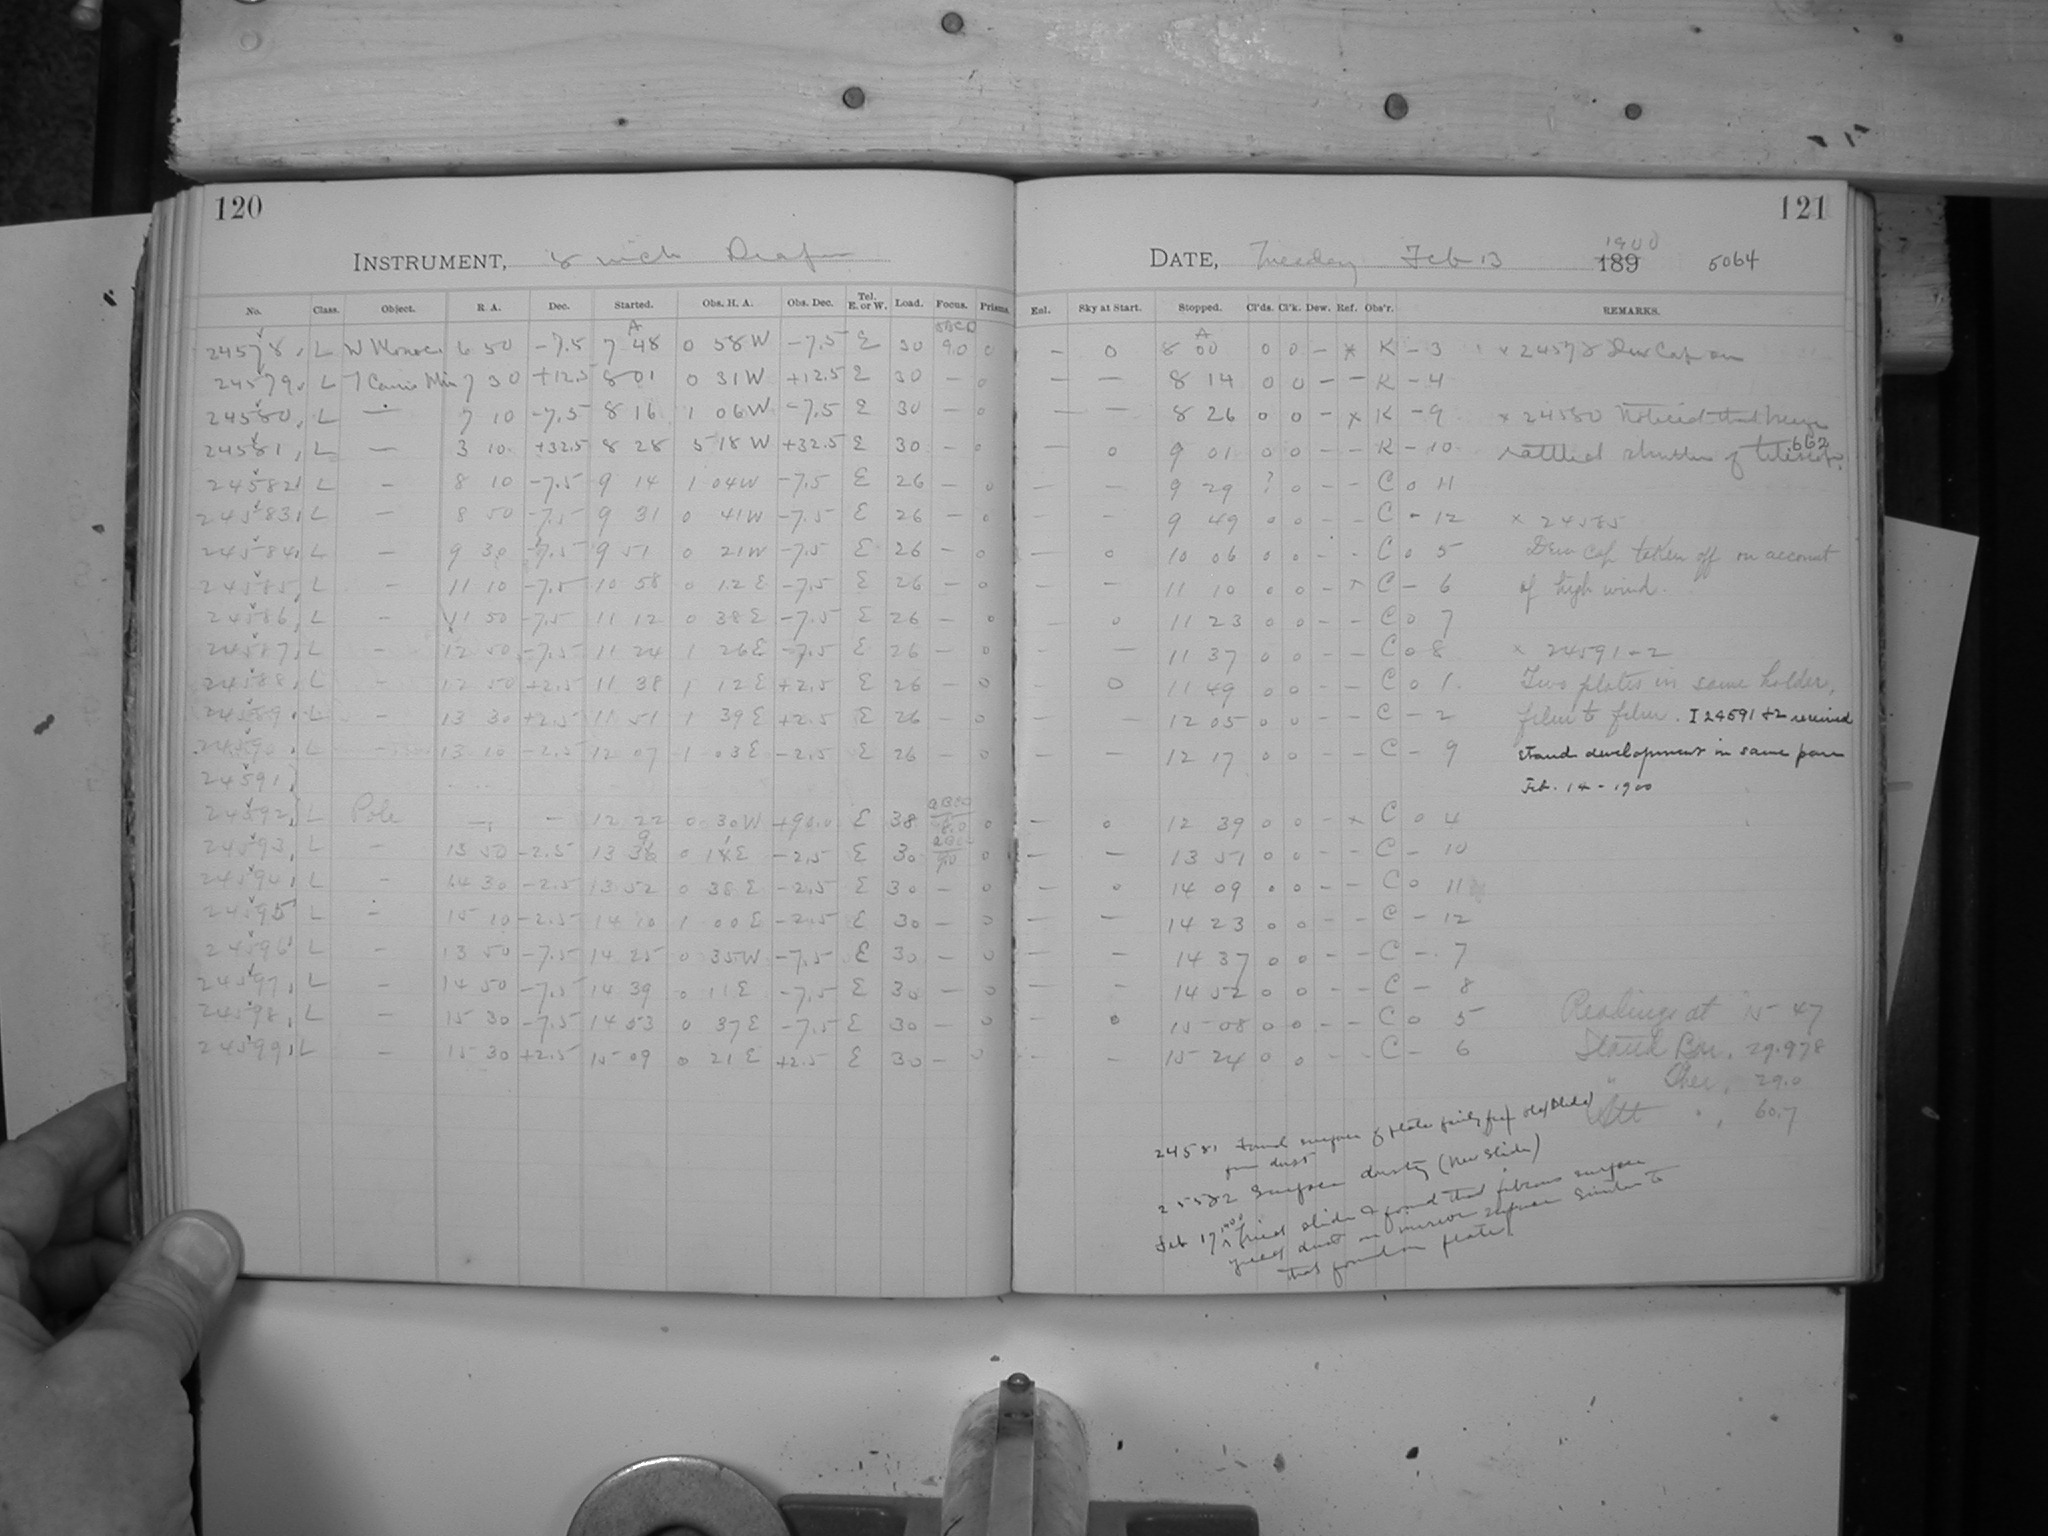 120
121
INSTRUMENT, 8 inch Draper
DATE, Tuesday Feb 13 1900 189 5064
No. Class. Object. R. A. Dec. Started. Obs. H. A. Obs. Dec. Tel. E. or W. Load. Focus. Prisms. Enl. Sky at Start. Stopped. Cl'ds. Cl'k. Dew. Ref. Obs'r. REMARKS.
A ABCD A
24578, L W Monoc. 6 50 -7.5 7 48 0 58 W -7.5 E 30 9.0 0 - 0 8 00 0 0 - x K - 3 x 24578 Dew Cap on
24579, L T Canis Min 7 30 +12.5 8 01 0 31 W +12.5 E 30 - 0 - - 8 14 0 0 - - K - 4
24580, L - 7 10 -7.5 8 16 1 06 W -7.5 E 30 - 0 - - 8 26 0 0 - x K - 9 x 24580 Noticed that
24581, L - 3 10 +32.5 8 28 5 18 W +32.5 E 30 - 0 - 0 9 01 0 0 - - K - 10 rattled shutter of 662
24582, L - 8 10 -7.5 9 14 1 04 W -7.5 E 26 - 0 - - 9 29 ? 0 - - C 0 11
24583, L - 8 50 -7.5 9 31 0 41 W -7.5 E 26 - 0 - - 9 49 0 0 - - C - 12 x 24585
24584, L - 9 30 -7.5 9 51 0 21 W -7.5 E 26 - 0 - 0 10 06 0 0 - - C 0 5 Dew cap taken off on account
24585, L - 11 10 -7.5 10 58 0 12 E -7.5 E 26 - 0 - - 11 10 0 0 - x C - 6 of high wind.
24586, L - 11 50 -7.5 11 12 0 38 E -7.5 E 26 - 0 - 0 11 23 0 0 - - C 0 7
24587, L - 12 50 -7.5 11 24 1 26 E -7.5 E 26 - 0 - - 11 37 0 0 - - C 0 8 x 24591-2
24588, L - 12 50 +2.5 11 38 1 12 E +2.5 E 26 - 0 - 0 11 49 0 0 - - C 0 1. Two plates in same holder,
24589, L - 13 30 +2.5 11 51 1 39 E +2.5 E 26 - 0 - - 12 05 0 0 - - C - 2 film to film. I 24591 +2 received
24590, L - 13 10 -2.5 12 07 1 03 E -2.5 E 26 - 0 - - 12 17 0 0 - - C - 9 stand development in same pan
24591, Feb. 14 - 1900
24592, L Pole - - 12 22 0 30 W +90.0 E 38 ABCD 8.0 0 - 0 12 39 0 0 - x C 0 4
24593, L - 13 50 -2.5 13 38 9 0 18 E -2.5 E 30 ABCD 9.0 0 - - 13 51 0 0 - - C - 10
24594, L - 14 30 -2.5 13 52 0 38 E -2.5 E 30 - 0 - 0 14 09 0 0 - - C 0 11
24595 L - 15 10 -2.5 14 10 1 00 E -2.5 E 30 - 0 - - 14 23 0 0 - - C - 12
24596 L - 13 50 -7.5 14 25 0 35 W -7.5 E 30 - 0 - - 14 37 0 0 - - C - 7
24597, L - 14 50 -7.5 14 39 0 11 E -7.5 E 30 - 0 - - 14 52 0 0 - - C - 8
24598, L - 15 30 -7.5 14 53 0 37 E -7.5 E 30 - 0 - 0 15 08 0 0 - - C 0 5 Readings at 15 47
24599, L - 15 30 +2.5 15 09 0 21 E +2.5 E 30 - 0 - - 15 24 0 0 - - C - 6 Stand Bar. 29.978
" Ther. 29.0
Att " , 60.7
24581 Found surface of plate fairly free (Old Slide)
from dust
25582 Surface dusty (New Slide)
Feb 17 1900 tried slide & found that fibrous surface
yields dust on mirror surface similar to
that found on plates